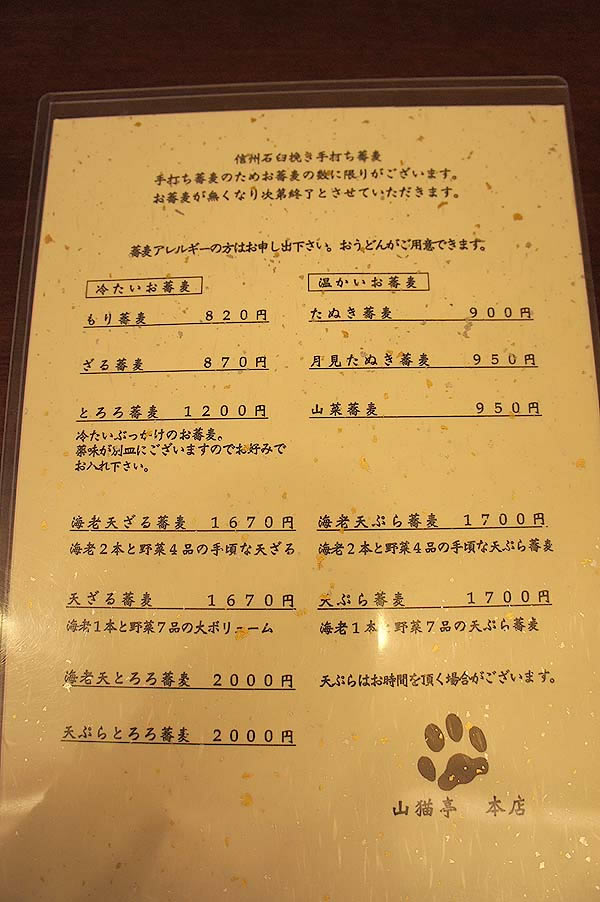 信州石臼挽き手打ち蕎麦
手打ち蕎麦のためお蕎麦の数に限りがございます。
お蕎麦が無くなり次第終了とさせていただきます。
蕎麦アレルギーの方はお申し出下さい。おうどんがご用意できます。
冷たいお蕎麦
もり蕎麦 820円
ざる蕎麦 870円
とろろ蕎麦 1200円
冷たいぶっかけのお蕎麦。
薬味が別皿にございますのでお好みで
お入れ下さい。
温かいお蕎麦
たぬき蕎麦 900円
月見たぬき蕎麦 950円
山菜蕎麦 950円
海老天ざる蕎麦 1670円
海老2本と野菜4品の手頃な天ざる
天ざる蕎麦 1670円
海老1本と野菜7品の大ボリューム
海老天とろろ蕎麦 2000円
天ぷらとろろ蕎麦 2000円
海老天ぷら蕎麦 1700円
海老2本と野菜4品の手頃な天ぷら蕎麦
天ぷら蕎麦 1700円
海老1本と野菜7品の天ぷら蕎麦
天ぷらはお時間を頂く場合がございます。
山猫亭 本店